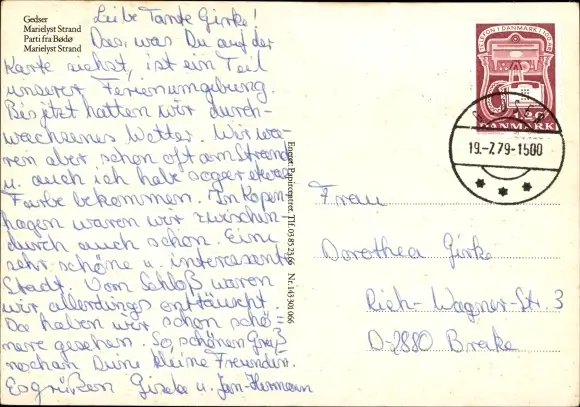 Gedser
Marielyst Strand
Parti fra Bødø
Marielyst Strand
Liebe Tante Girke!
Das, was Du auf der
Karte siehst, ist ein Teil
unserer Ferienumgebung.
Bis jetzt hatten wir durch-
wachsenes Wetter. Wir wa-
ren aber schon oft am Strand
u. auch ich habe sogar etwas
Farbe bekommen. In Kopen-
hagen waren wir zwischen-
durch auch schon. Eine
sehr schöne u. interessante
Stadt. Vom Schloß waren
wir allerdings enttäuscht.
Da haben wir schon schö-
nere gesehen. So, schönen Gruß
noch an Deine kleine Freundin.
Es grüßen Gisela u. Jan-Hermann
Eneret: Papircentret. Tlf. 03 85 23 66 Nr. 143 301 066
TELEFON I DANMARK 100 ÅR
1.20
DANMARK
19.-7.79-1500
Frau
Dorothea Girke
Rich-Wagner-Str. 3
D-2880 Brake